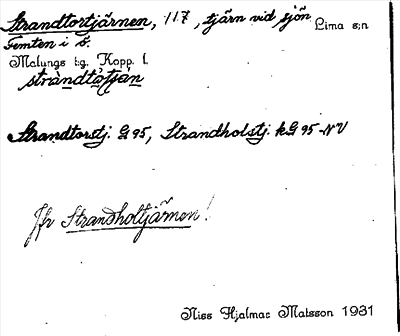 Strandtortjärnen, 117, tjärn vid sjön Lima s:n
Femten i ö.
Malungs tg. Kopp. l.
strandtọtjan
Strandtorstj. G 95, Strandholstj. kG 95 NV
Jfr Strandholtjärnen!
Niss Hjalmar Matsson 1931